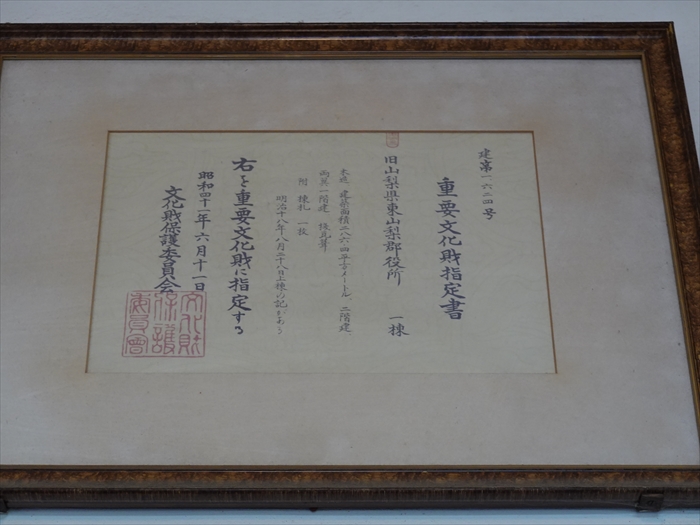 建第一六二四号
重要文化財指定書
旧山梨県東山梨郡役所 一棟
木造 建築面積二八六・四平方メートル 二階建
両翼一階建 桟瓦葺
附 棟札 一枚
明治十八年八月二十八日上棟の記がある
右を重要文化財に指定する
昭和四十一年六月十一日
文化財保護委員会
文化財
保護
委員會